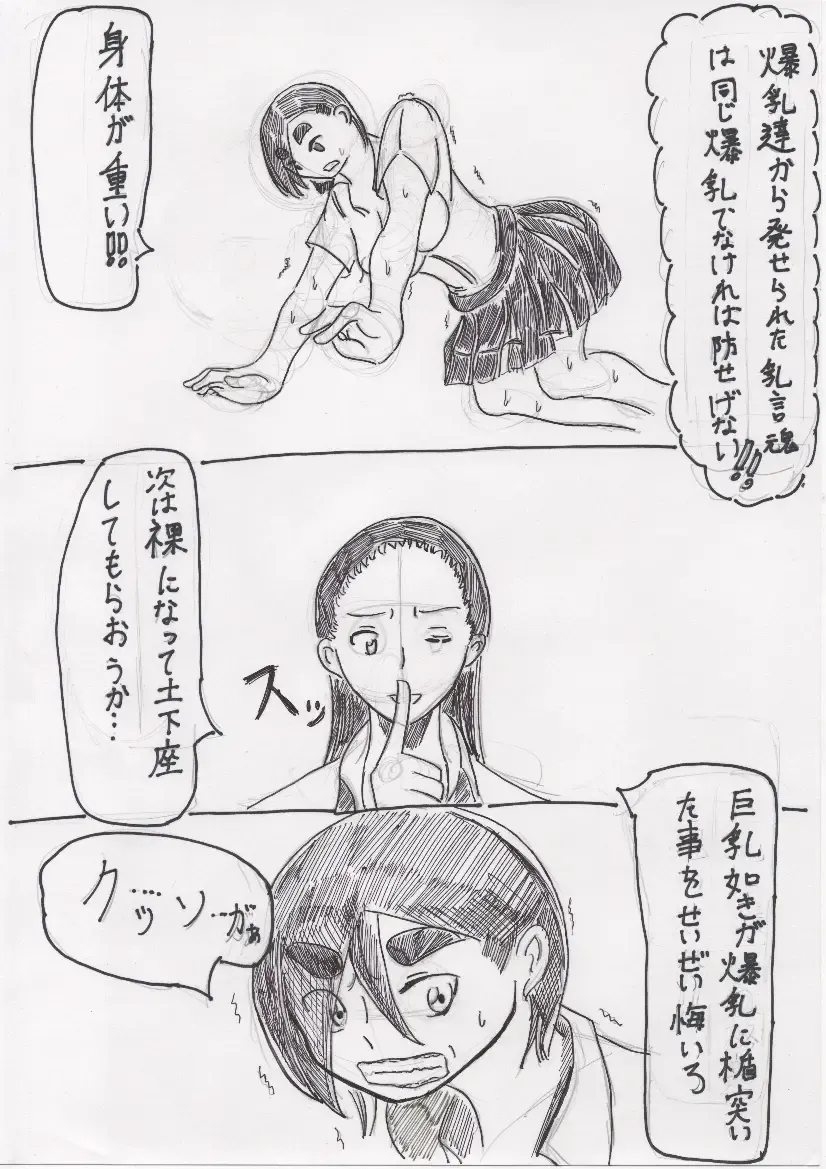 爆乳達から発せられた乳言魂
は同じ爆乳でなければ防せげない!!!
身体が重い!!!
次は裸になって土下座
してもらおうか…
スッ
巨乳如きが爆乳に楯突い
た事をせいぜい悔いろ
クッ……ソ…がぁ